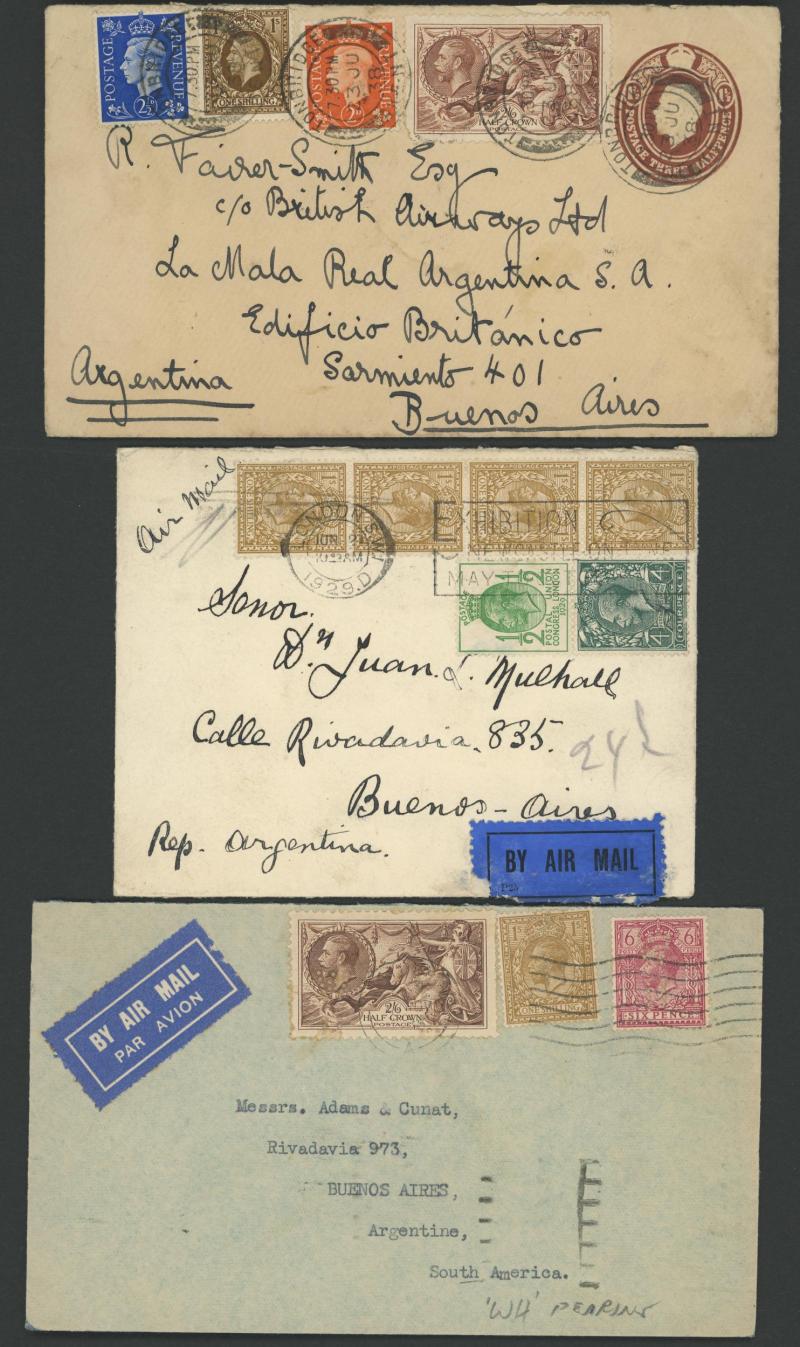 POSTAGE REVENUE
2½D
1S
ONE SHILLING
POSTAGE REVENUE
2D
2/6
HALF CROWN
POSTAGE
POSTAGE THREE HALFPENCE
TONBRIDGE
7.30 PM
23 JU
38
R. Fairer-Smith Esq
c/o British Airways Ltd
La Mala Real Argentina S. A.
Edificio Británico
Sarmiento 401
Argentina
Buenos Aires
Air Mail
POSTAGE
POSTAGE
POSTAGE
POSTAGE
LONDON. S.W.1
JUN
1929.D
EXHIBITION
NEWCASTLE-ON
MAY
POSTAGE
1/2 1/2
POSTAL UNION
CONGRESS LONDON
1929
4D 4D
FOURPENCE
Senor.
Dn Juan. L. Mulhall
Calle Rivadavia. 835.
Buenos-Aires
Rep. Argentina.
BY AIR MAIL
BY AIR MAIL
PAR AVION
2/6
HALF CROWN
POSTAGE
1S 1S
ONE SHILLING
6D 6D
SIXPENCE
Messrs. Adams & Cunat,
Rivadavia 973,
BUENOS AIRES,
Argentine,
South America.
'W4'